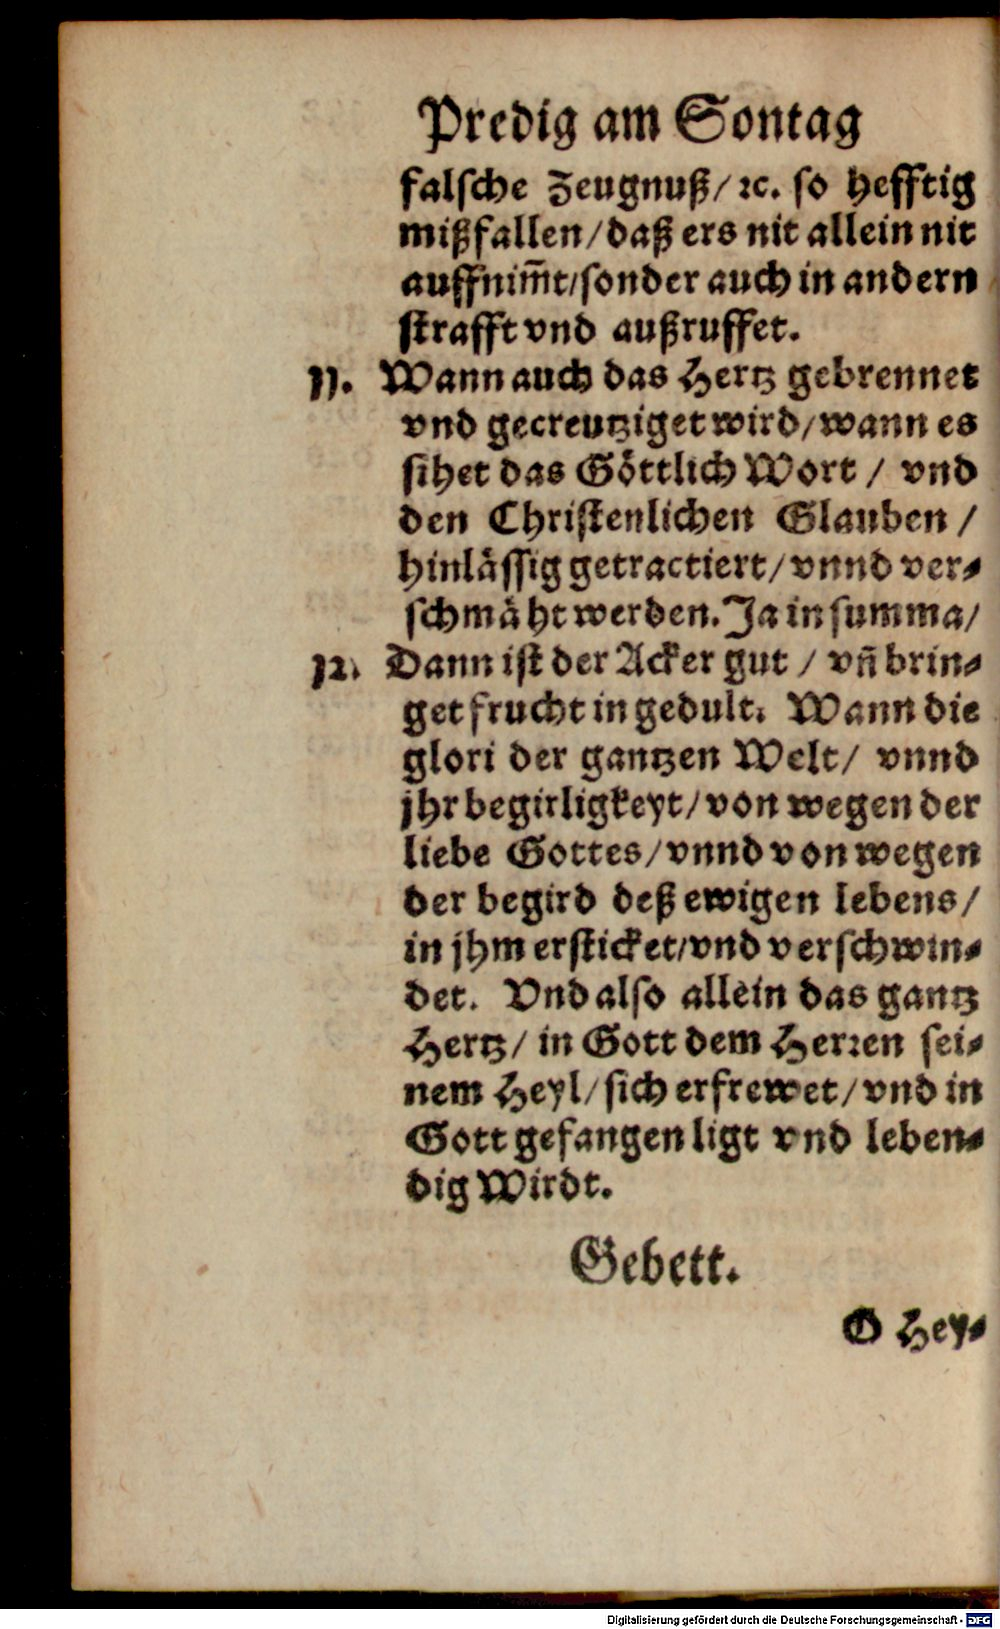 Predig am Sontag
falsche Zeugnuß/ ꝛc. so hefftig
mißfallen/daß ers nit allein nit
auffnim̃t/sonder auch in andern
strafft vnd außruffet.
11. Wann auch das Hertz gebrennet
vnd gecreutziget wird/wann es
sihet das Göttlich Wort / vnd
den Christenlichen Glauben /
hinlässig getractiert/vnnd ver-
schmäht werden. Ja in summa/
12. Dann ist der Acker gut / vñ brin-
get frucht in gedult. Wann die
glori der gantzen Welt/ vnnd
jhr begirligkeyt/von wegen der
liebe Gottes/vnnd von wegen
der begird deß ewigen lebens/
in jhm ersticket/vnd verschwin-
det. Vnd also allein das gantz
Hertz/ in Gott dem Herꝛen sei-
nem Heyl/sich erfrewet/vnd in
Gott gefangen ligt vnd leben-
dig Wirdt.
Gebett.
O Hey-
Digitalisierung gefördert durch die Deutsche Forschungsgemeinschaft - DFG